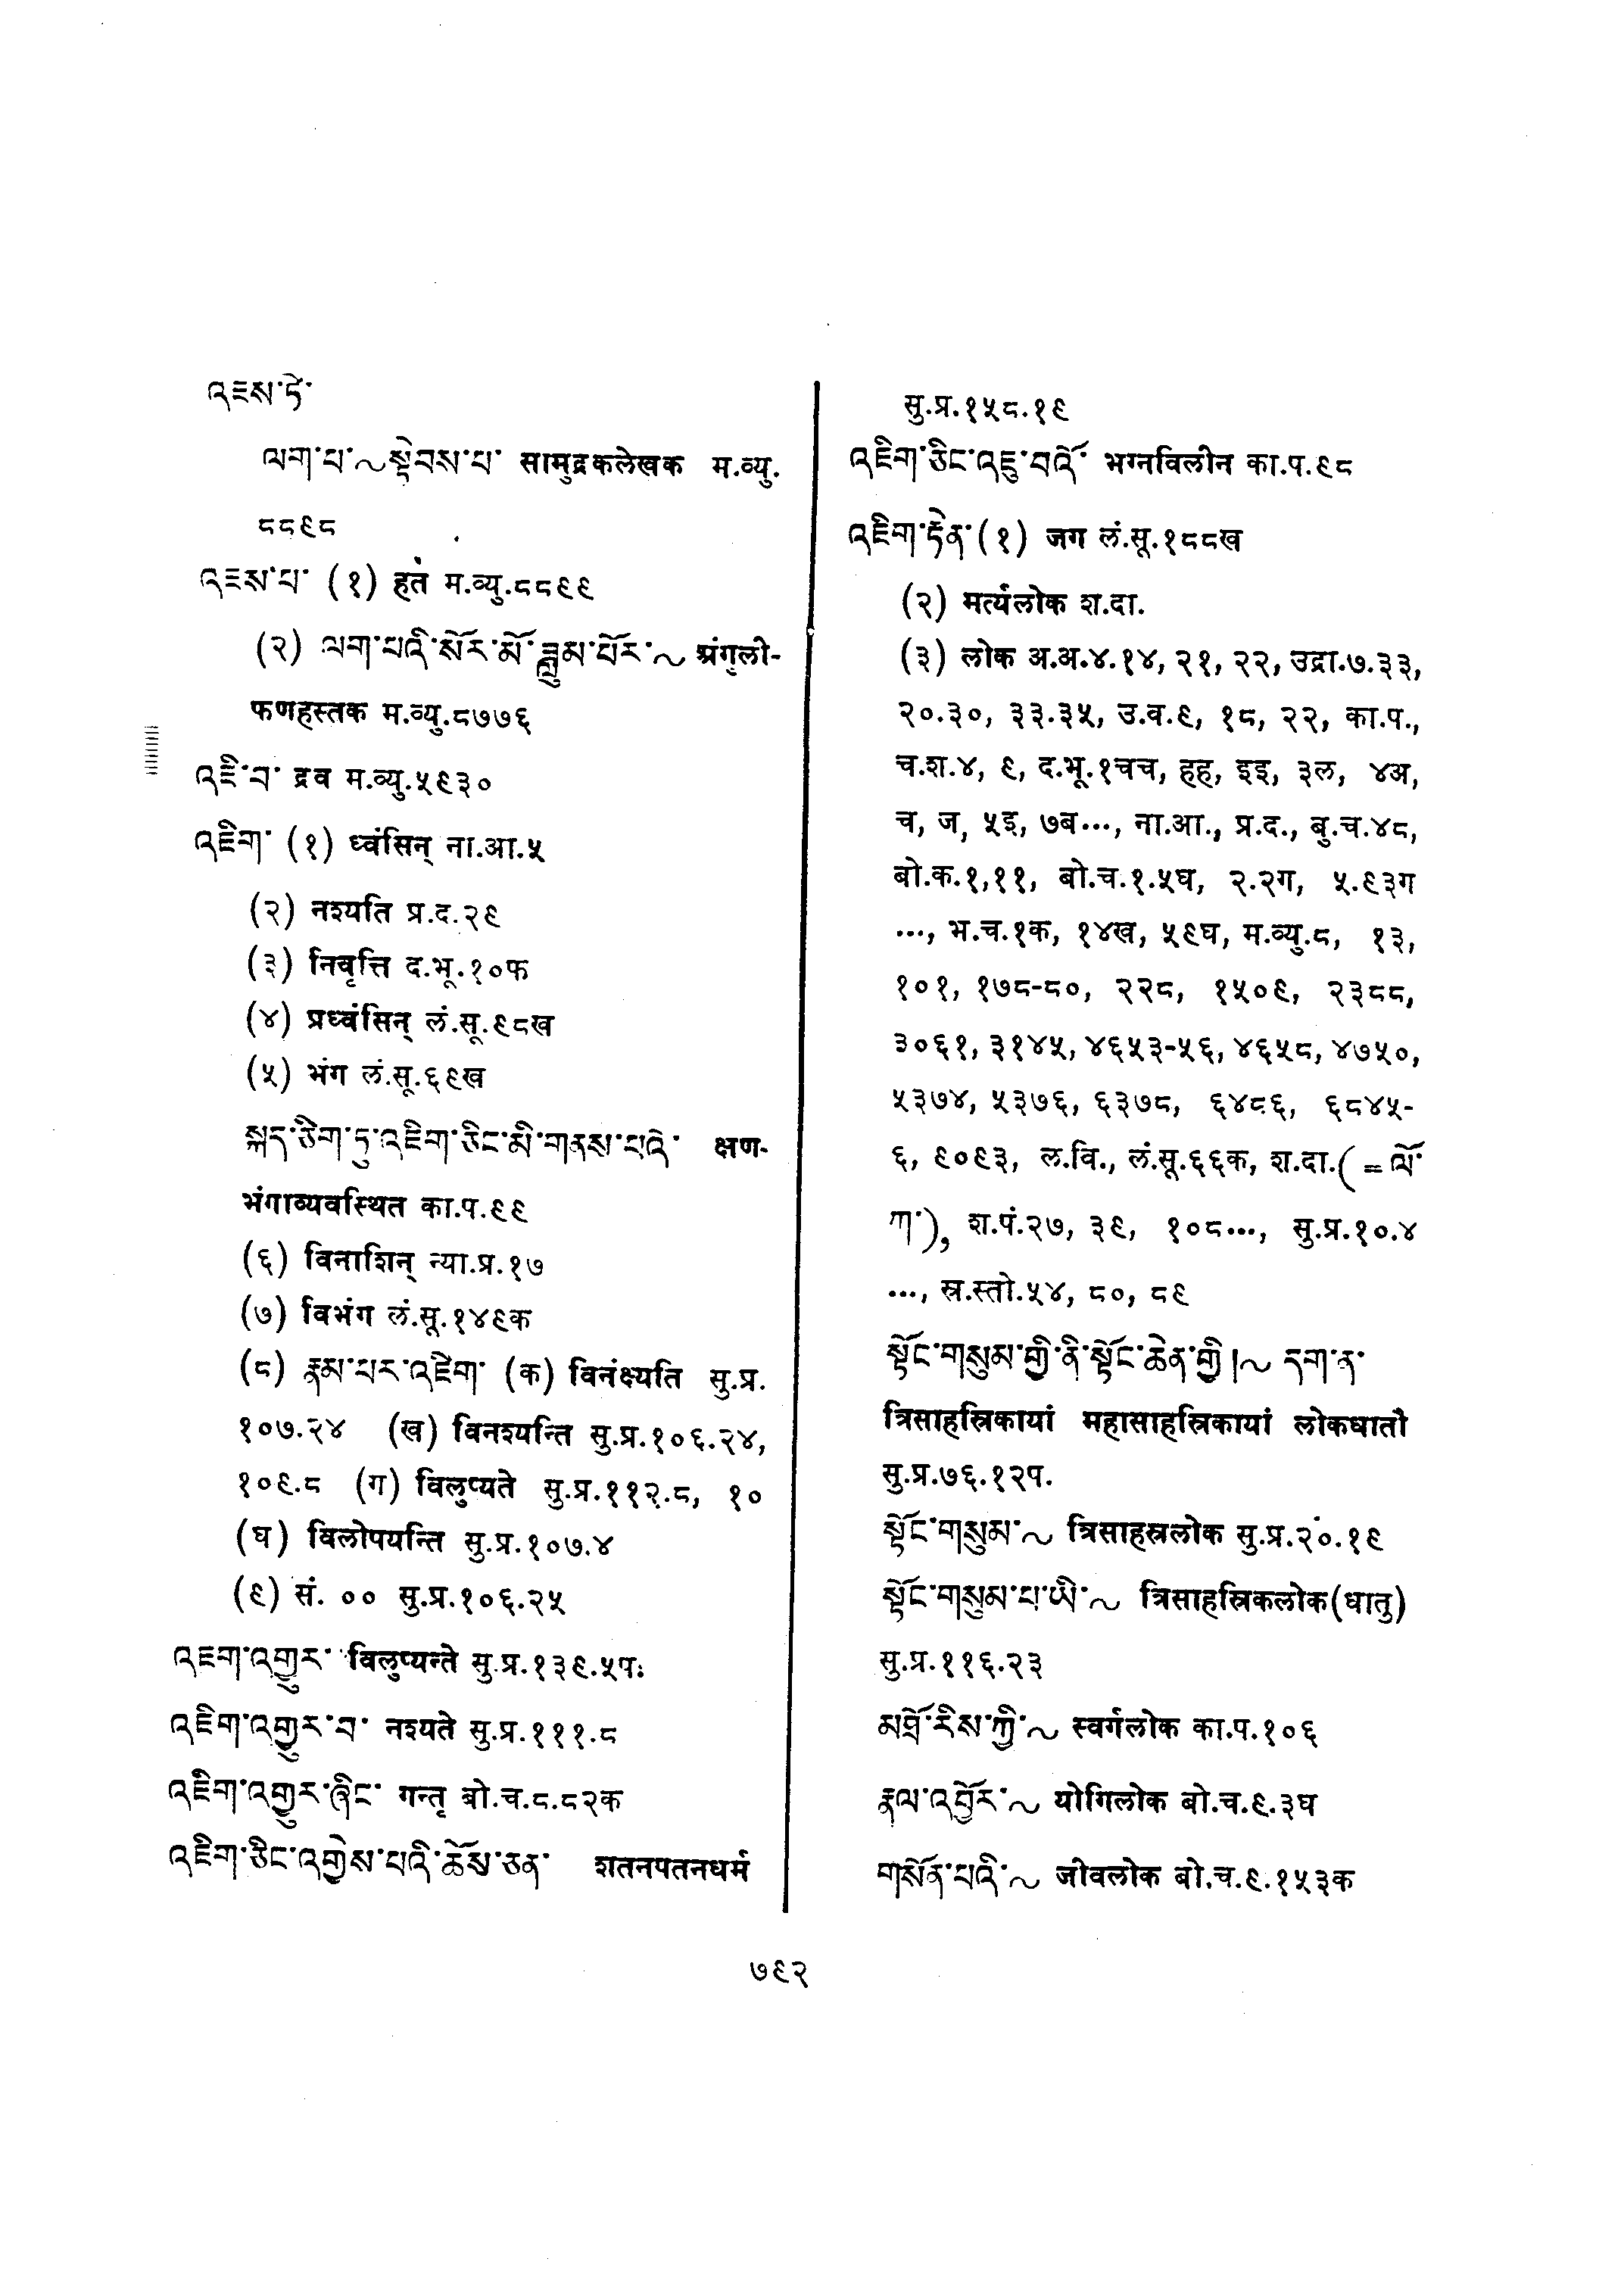 འཇས་ཏེ་
ལག་པ་~སྡེབས་པ་ सामुद्रकलेखक म.व्यु.
८८९८
འཇས་པ་ (१) हतं म.व्यु.८८९९
(२) ལག་པའི་སོར་མོ་ཟླུམ་པོར་~ अंगुली-
फणहस्तक म.व्यु.८७७६
འཇི་བ་ द्रव म.व्यु.५९३०
འཇིག་ (१) ध्वंसिन् ना.आ.५
(२) नश्यति प्र.द.२९
(३) निवृत्ति द.भू.१०फ
(४) प्रध्वंसिन् लं.सू.९८ख
(५) भंग लं.सू.६९ख
སྐད་ཅིག་ཏུ་འཇིག་ཅིང་མི་གནས་པའི་ क्षण-
भंगाव्यवस्थित का.प.९९
(६) विनाशिन् न्या.प्र.१७
(७) विभंग लं.सू.१४९क
(८) རྣམ་པར་འཇིག་ (क) विनंक्ष्यति सु.प्र.
१०७.२४ (ख) विनश्यन्ति सु.प्र.१०६.२४,
१०९.८ (ग) विलुप्यते सु.प्र.११२.८, १०
(घ) विलोपयन्ति सु.प्र.१०७.४
(९) सं. ०० सु.प्र.१०६.२५
འཇག་འགྱུར་ विलुप्यन्ते सु.प्र.१३९.५प.
འཇིག་འགྱུར་བ་ नश्यते सु.प्र.१११.८
འཇིག་འགྱུར་ཞིང་ गन्तृ बो.च.८.८२क
འཇིག་ཅིང་འགྱེས་པའི་ཆོས་ཅན་ शतनपतनधर्म
सु.प्र.१५८.१९
འཇིག་ཅིང་འཇུ་བའོ་ भग्नविलीन का.प.९८
འཇིག་རྟེན་ (१) जग लं.सू.१८८ख
(२) मर्त्यलोक श.दा.
(३) लोक अ.अ.४.१४, २१, २२, उद्रा.७.३३,
२०.३०, ३३.३५, उ.व.९, १८, २२, का.प.,
च.श.४, ९, द.भू.१चच, हह, इइ, ३ल, ४अ,
च, ज, ५इ, ७ब..., ना.आ., प्र.द., बु.च.४८,
बो.क.१,११, बो.च.१.५घ, २.२ग, ५.९३ग
..., भ.च.१क, १४ख, ५९घ, म.व्यु.८, १३,
१०१, १७८-८०, २२८, १५०९, २३८८,
३०६१, ३१४५, ४६५३-५६, ४६५८, ४७५०,
५३७४, ५३७६, ६३७८, ६४८६, ६८४५-
६, ९०९३, ल.वि., लं.सू.६६क, श.दा.( = ལོ་
ཀ་), श.पं.२७, ३९, १०८..., सु.प्र.१०.४
..., स्र.स्तो.५४, ८०, ८९
སྟོང་གསུམ་གྱི་ནི་སྟོང་ཆེན་གྱི།~ དག་ན་
त्रिसाहस्रिकायां महासाहस्रिकायां लोकधातौ
सु.प्र.७६.१२प.
སྟོང་གསུམ་~ त्रिसाहस्रलोक सु.प्र.२०.१९
སྟོང་གསུམ་པ་ཡི་~ त्रिसाहस्रिकलोक(धातु)
सु.प्र.११६.२३
མཐོ་རིས་ཀྱི་~ स्वर्गलोक का.प.१०६
རྣལ་འབྱོར་~ योगिलोक बो.च.९.३घ
གསོན་པའི་~ जीवलोक बो.च.९.१५३क
७९२